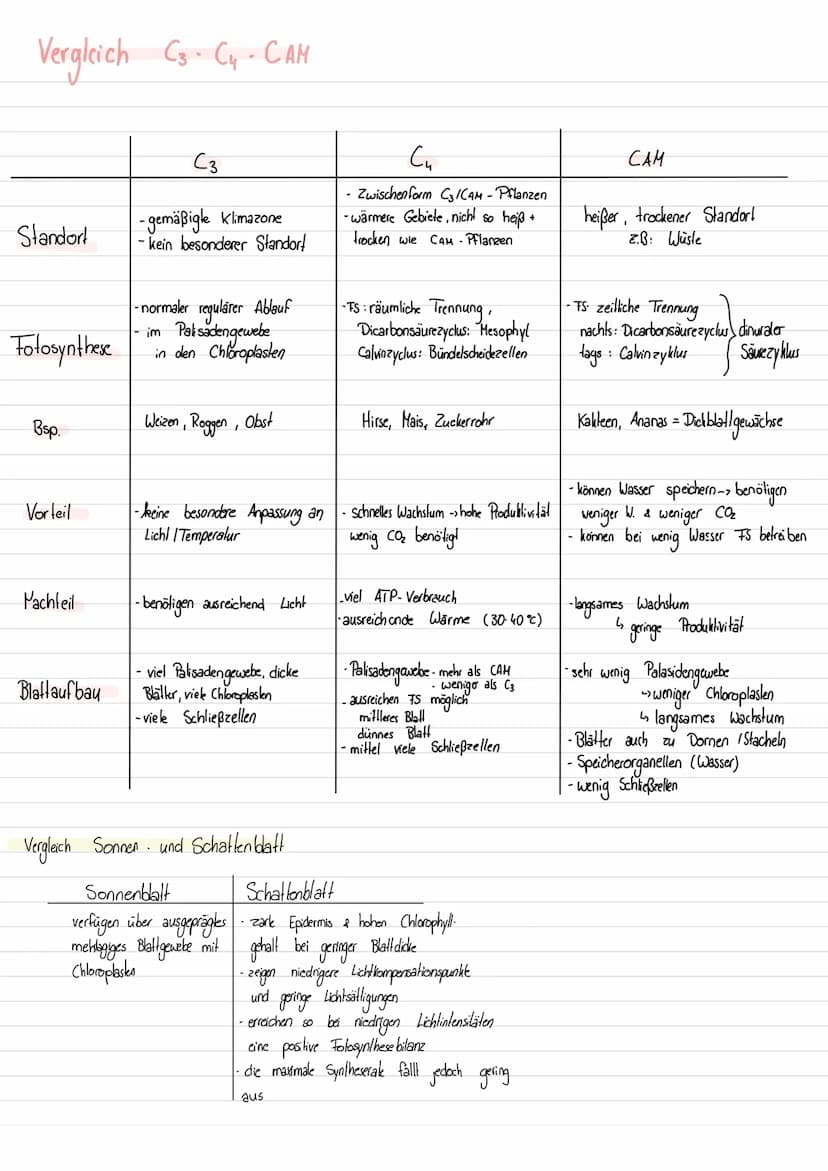 Vergleich C3 - C4 - CAM
C3 C4 CAM
Standort
- gemäßigte Klimazone
- kein besonderer Standort
- Zwischenform C3/CAM - Pflanzen
- wärmere Gebiele, nicht so heiß +
trocken wie CAM - Pflanzen
heißer, trockener Standort
z.B: Wüste
Fotosynthese
- normaler regulärer Ablauf
- im Palisadengewebe
in den Chloroplasten
- FS: räumliche Trennung,
Dicarbonsäurezyclus: Mesophyl
Calvinzyclus: Bündelscheidezellen
- FS: zeitliche Trennung
nachts: Dicarbonsäurezyclus
tags: Calvinzyklus
dinuraler
Säurezyklus
Bsp.
Weizen, Roggen, Obst
Hirse, Mais, Zuckerrohr
Kakteen, Ananas = Dickblattgewächse
Vorteil
- keine besondere Anpassung an
Licht / Temperatur
- schnelles Wachstum -> hohe Produktivität
wenig CO2 benötigt
- können Wasser speichern --> benötigen
weniger W. & weniger CO2
- können bei wenig Wasser FS betreiben
Nachteil
- benötigen ausreichend Licht
- viel ATP-Verbrauch
- ausreichende Wärme (30-40°C)
- langsames Wachstum
↳ geringe Produktivität
Blattaufbau
- viel Palisadengewebe, dicke
Blätter, viele Chloroplasten
- viele Schließzellen
- Palisadengewebe - mehr als CAM
- weniger als C3
- ausreichen FS möglich
mittleres Blatt
dünnes Blatt
- mittel viele Schließzellen
- sehr wenig Palasidengewebe
-> weniger Chloroplasten
↳ langsames Wachstum
- Blätter auch zu Dornen / Stacheln
- Speicherorganellen (Wasser)
- wenig Schließzellen
Vergleich Sonnen- und Schattenblatt
Sonnenblatt Schattenblatt
verfügen über ausgeprägtes
mehrlagiges Blattgewebe mit
Chloroplasten
- zarte Epidermis & hohen Chlorophyll-
gehalt bei geringer Blattdicke
- zeigen niedrigere Lichtkompensationspunkte
und geringe Lichtsättigungen
- erreichen so bei niedrigen Lichtintensitäten
eine positive Fotosynthesebilanz
- die maximale Syntheserate fällt jedoch gering
aus